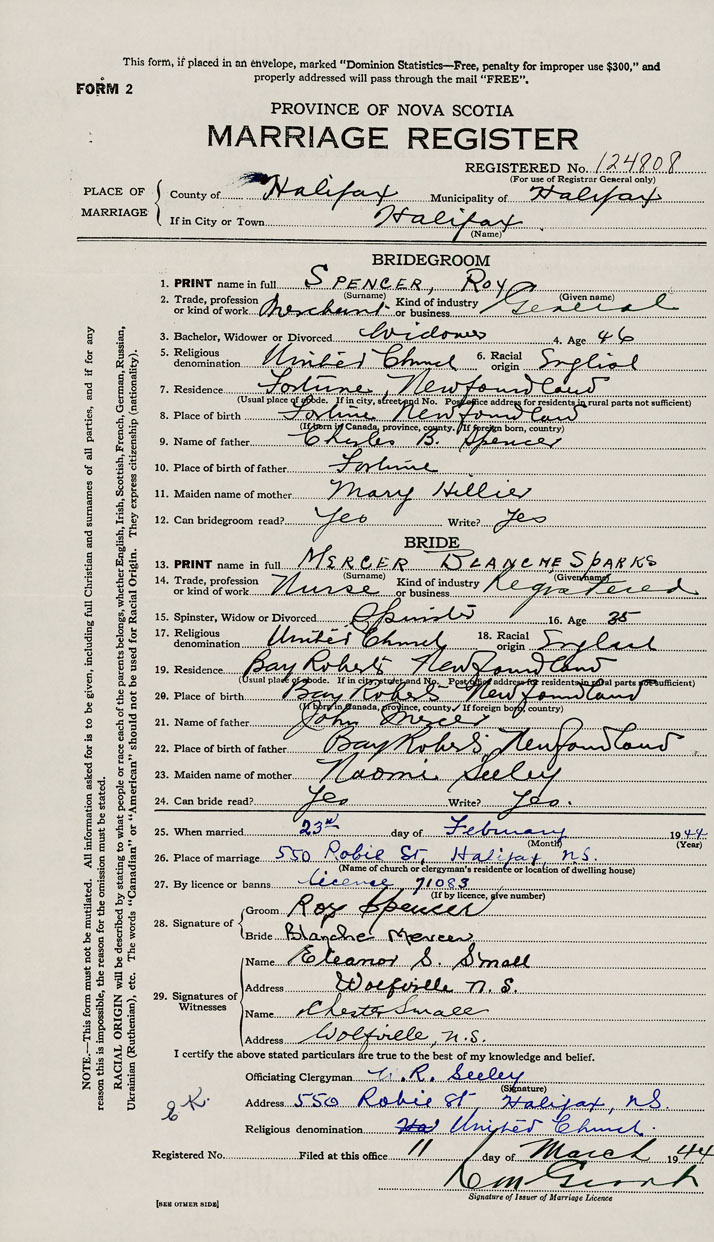 This form, if placed in an envelope, marked "Dominion Statistics—Free, penalty for improper use $300," and
properly addressed will pass through the mail "FREE".
FORM 2
PROVINCE OF NOVA SCOTIA
MARRIAGE REGISTER
REGISTERED No. 124808
(For use of Registrar General only)
PLACE OF MARRIAGE
County of Halifax Municipality of Halifax
If in City or Town Halifax
(Name)
BRIDEGROOM
1. PRINT name in full SPENCER, ROY
(Surname) (Given name)
2. Trade, profession or kind of work Merchant Kind of industry or business General
3. Bachelor, Widower or Divorced Widower 4. Age 46
5. Religious denomination United Church 6. Racial origin English
7. Residence Fortune, Newfoundland
(Usual place of abode. If in city, street and No. Post office address for residents in rural parts not sufficient)
8. Place of birth Fortune Newfoundland
(If born in Canada, province, county. If foreign born, country)
9. Name of father Charles B. Spencer
10. Place of birth of father Fortune
11. Maiden name of mother Mary Hillier
12. Can bridegroom read? Yes Write? Yes
BRIDE
13. PRINT name in full MERCER BLANCHE SPARKS
(Surname) (Given name)
14. Trade, profession or kind of work Nurse Kind of industry or business Registered
15. Spinster, Widow or Divorced Spinster 16. Age 35
17. Religious denomination United Church 18. Racial origin England
19. Residence Bay Roberts Newfoundland
(Usual place of abode. If in city, street and No. Post office address for residents in rural parts not sufficient)
20. Place of birth Bay Roberts Newfoundland
(If born in Canada, province, county. If foreign born, country)
21. Name of father John Mercer
22. Place of birth of father Bay Roberts, Newfoundland
23. Maiden name of mother Naomi Seeley
24. Can bride read? Yes Write? Yes.
25. When married 23rd day of February 1944
(Month) (Year)
26. Place of marriage 550 Robie St, Halifax, N.S.
(Name of church or clergyman's residence or location of dwelling house)
27. By licence or banns License 71083
(If by licence, give number)
28. Signature of
Groom Roy Spencer
Bride Blanche Mercer
29. Signatures of Witnesses
Name Eleanor S. Small
Address Wolfville N.S.
Name Chester Small
Address Wolfville, N.S.
I certify the above stated particulars are true to the best of my knowledge and belief.
Officiating Clergyman R. Seeley
(Signature)
Address 550 Robie St, Halifax, N.S.
Religious denomination United Church.
E K.
Registered No. Filed at this office 11 day of March 1944
Signature of Issuer of Marriage Licence
[SEE OTHER SIDE]
NOTE.—This form must not be mutilated. All information asked for is to be given, including full Christian and surnames of all parties, and if for any
reason this is impossible, the reason for the omission must be stated.
RACIAL ORIGIN will be described by stating to what people or race each of the parents belongs, whether English, Irish, Scottish, French, German, Russian,
Ukrainian (Ruthenian), etc. The words "Canadian" or "American" should not be used for Racial Origin. They express citizenship (nationality).